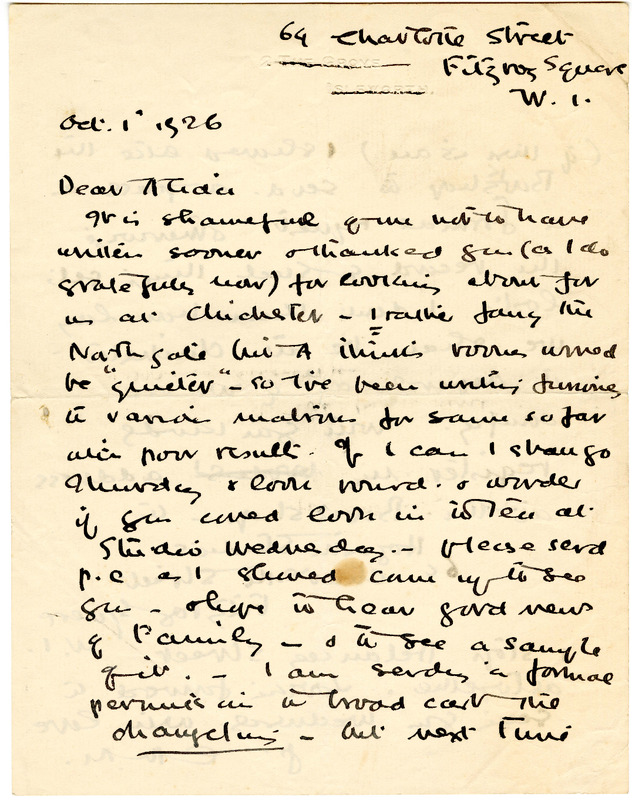 64 Charlotte Street
Fitzroy Square
W. 1.
Oct. 1st 1926
Dear
It is shameful of me not to have
written sooner & thanked you (as I do
gratefully now) for looking about for
us at Chichester – I rather fancy the
Northgate but A thinks rooms would
be "quieter" – so I've been writing
to various matrons for same so far
with poor result. If I can I shall go
Thursday & look round. & wonder
if you could look in to tea at
Studio Wednesday. – please send
p.c as I should come up to see
you – & hope to hear good news
of Family – & to see a sample
of it. – I am sending a formal
permission to broadcast the
changeling – but next time